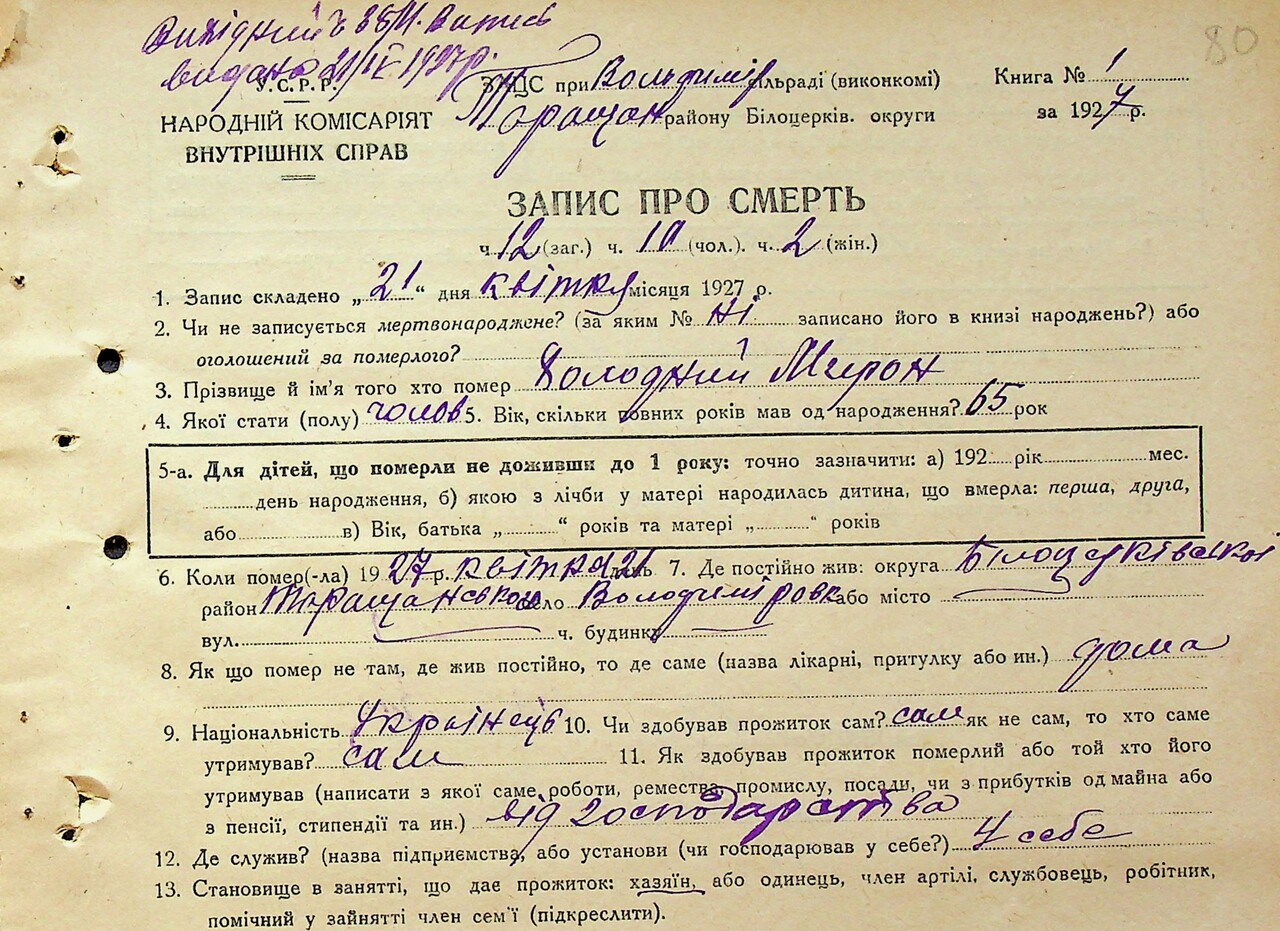 Вихідний Ч 38/11. Витяг
видано 21/IV 1927р.
80
У.С.Р.Р.
НАРОДНІЙ КОМІСАРІЯТ
ВНУТРІШНІХ СПРАВ
ЗАЦС при Володимір сільраді (виконкомі)
Таращан району Білоцерків. округи
Книга № 1
за 1927 р.
ЗАПИС ПРО СМЕРТЬ
ч. 12 (заг.) ч. 10 (чол.). ч. 2 (жін.)
1. Запис складено „21“ дня квітня місяця 1927 р.
2. Чи не записується мертвонароджене? (за яким № ні записано його в книзі народжень?) або
оголошений за померлого?
3. Прізвище й ім'я того хто помер Холодний Мирон
4. Якої стати (полу) чолов 5. Вік, скільки повних років мав од народження? 65 рок
5-а. Для дітей, що померли не доживши до 1 року: точно зазначити: а) 192 рік мес.
день народження, б) якою з лічби у матері народилась дитина, що вмерла: перша, друга,
або в) Вік, батька „ “ років та матері „ “ років
6. Коли помер(-ла) 1927 р. квітня 21 день 7. Де постійно жив: округа Білоцерківської
район Таращанського село Володиміровка або місто
вул. ч. будинку
8. Як що помер не там, де жив постійно, то де саме (назва лікарні, притулку або ин.) дома
9. Національність Українець 10. Чи здобував прожиток сам? сам як не сам, то хто саме
утримував? сам 11. Як здобував прожиток померлий або той хто його
утримував (написати з якої саме роботи, ремества, промислу, посади, чи з прибутків од майна або
з пенсії, стипендії та ин.) від господарства
12. Де служив? (назва підприємства, або установи (чи господарював у себе?) У себе
13. Становище в занятті, що дає прожиток: хазяїн, або одинець, член артілі, службовець, робітник,
помічний у зайнятті член сем'ї (підкреслити).